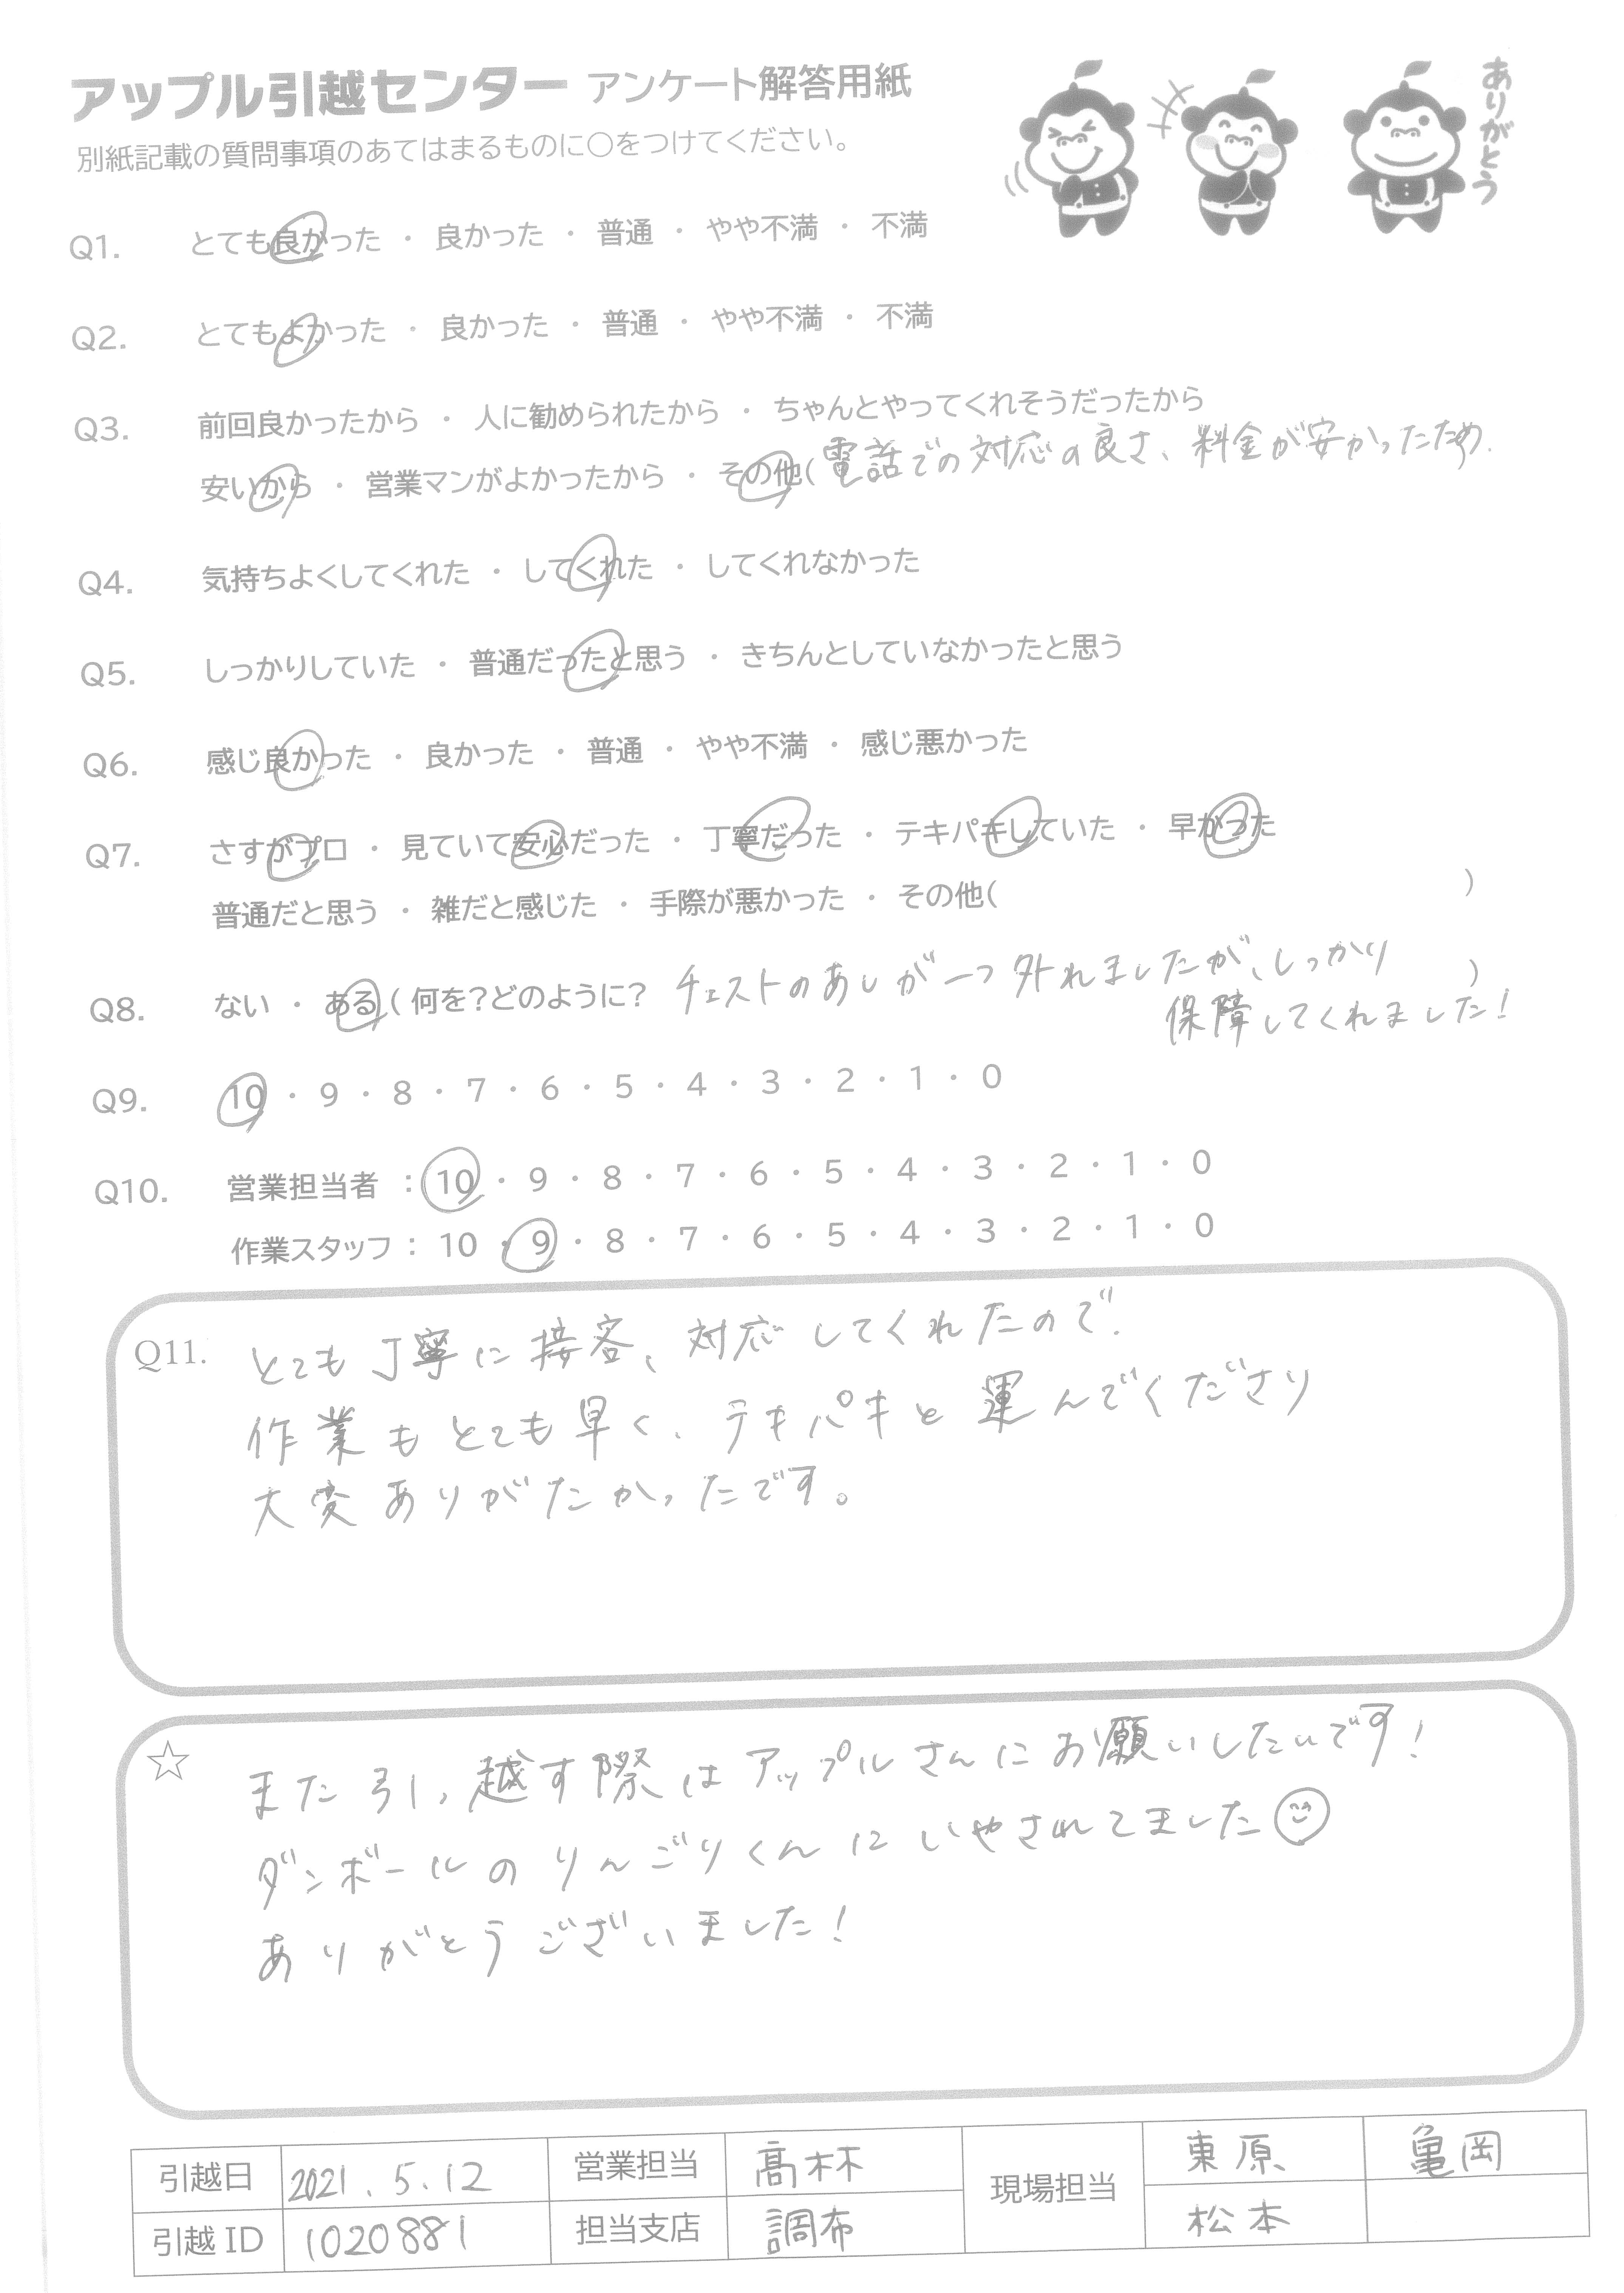 アップル引越センター アンケート解答用紙
ありがとう
別紙記載の質問事項のあてはまるものに○をつけてください。
Q1. とても良かった ・ 良かった ・ 普通 ・ やや不満 ・ 不満
Q2. とてもよかった ・ 良かった ・ 普通 ・ やや不満 ・ 不満
Q3. 前回良かったから ・ 人に勧められたから ・ ちゃんとやってくれそうだったから
安いから ・ 営業マンがよかったから ・ その他( 電話での対応の良さ、料金が安かったため.
Q4. 気持ちよくしてくれた ・ してくれた ・ してくれなかった
Q5. しっかりしていた ・ 普通だったと思う ・ きちんとしていなかったと思う
Q6. 感じ良かった ・ 良かった ・ 普通 ・ やや不満 ・ 感じ悪かった
Q7. さすがプロ ・ 見ていて安心だった ・ 丁寧だった ・ テキパキしていた ・ 早かった
普通だと思う ・ 雑だと感じた ・ 手際が悪かった ・ その他( )
Q8. ない ・ ある ( 何を?どのように? チェストのあしが一つ外れましたが、しっかり )
保障してくれました!
Q9. 10 ・ 9 ・ 8 ・ 7 ・ 6 ・ 5 ・ 4 ・ 3 ・ 2 ・ 1 ・ 0
Q10. 営業担当者 : 10 ・ 9 ・ 8 ・ 7 ・ 6 ・ 5 ・ 4 ・ 3 ・ 2 ・ 1 ・ 0
作業スタッフ : 10 ・ 9 ・ 8 ・ 7 ・ 6 ・ 5 ・ 4 ・ 3 ・ 2 ・ 1 ・ 0
Q11. とても丁寧に接客、対応してくれたので.
作業もとても早く、テキパキと運んでくださり
大変ありがたかったです。
☆ また引っ越す際はアップルさんにお願いしたいです!
ダンボールのりんごりくんにいやされてました
ありがとうございました!
引越日 2021.5.12 営業担当 髙林 現場担当 東原 亀岡
引越ID 1020881 担当支店 調布 松本